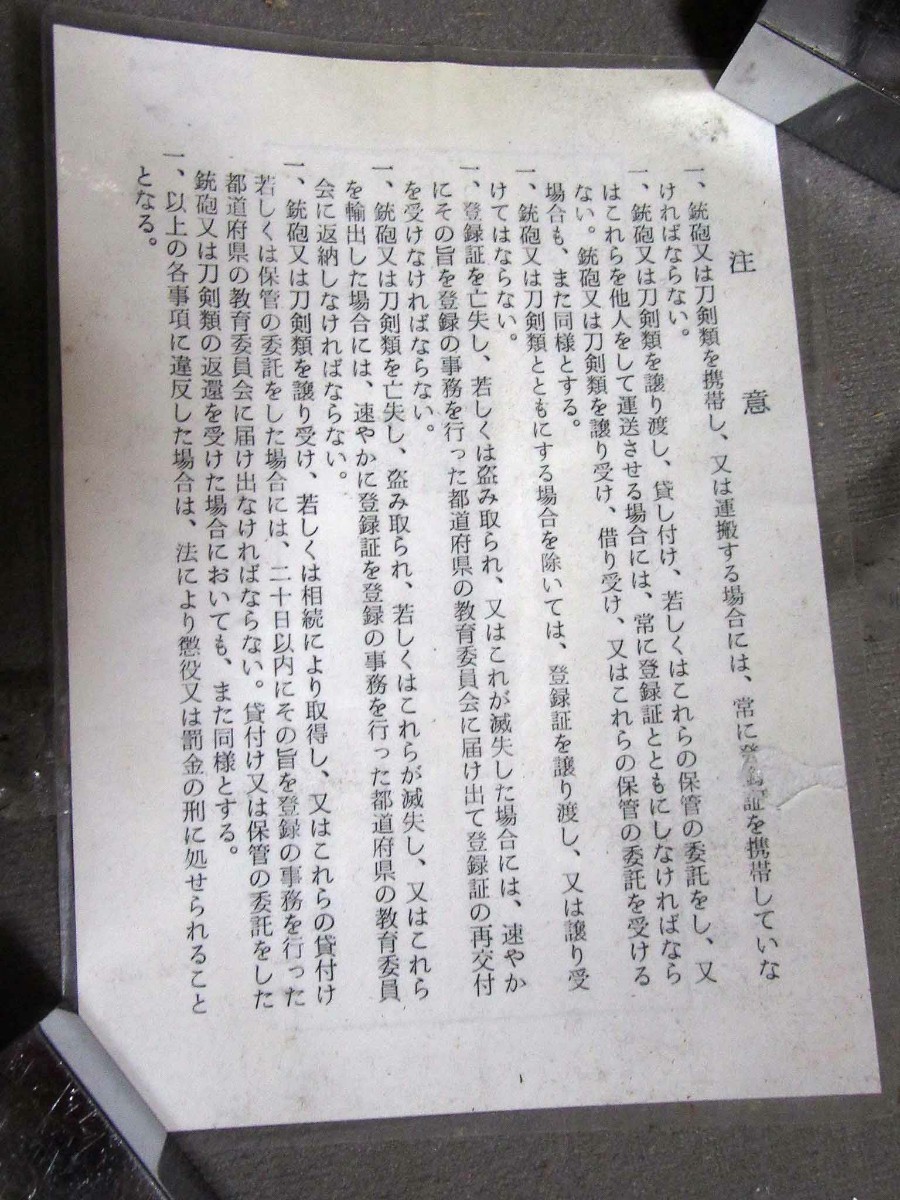 注意
一、銃砲又は刀剣類を携帯し、又は運搬する場合には、常に登録証を携帯していな
ければならない。
一、銃砲又は刀剣類を譲り渡し、貸し付け、若しくはこれらの保管の委託をし、又
はこれらを他人をして運送させる場合には、常に登録証とともにしなければなら
ない。銃砲又は刀剣類を譲り受け、借り受け、又はこれらの保管の委託を受ける
場合も、また同様とする。
一、銃砲又は刀剣類とともにする場合を除いては、登録証を譲り渡し、又は譲り受
けてはならない。
一、登録証を亡失し、若しくは盗み取られ、又はこれが滅失した場合には、速やか
にその旨を登録の事務を行った都道府県の教育委員会に届け出て登録証の再交付
を受けなければならない。
一、銃砲又は刀剣類を亡失し、盗み取られ、若しくはこれらが滅失し、又はこれら
を輸出した場合には、速やかに登録証を登録の事務を行った都道府県の教育委員
会に返納しなければならない。
一、銃砲又は刀剣類を譲り受け、若しくは相続により取得し、又はこれらの貸付け
若しくは保管の委託をした場合には、二十日以内にその旨を登録の事務を行った
都道府県の教育委員会に届け出なければならない。貸付け又は保管の委託をした
銃砲又は刀剣類の返還を受けた場合においても、また同様とする。
一、以上の各事項に違反した場合は、法により懲役又は罰金の刑に処せられること
となる。